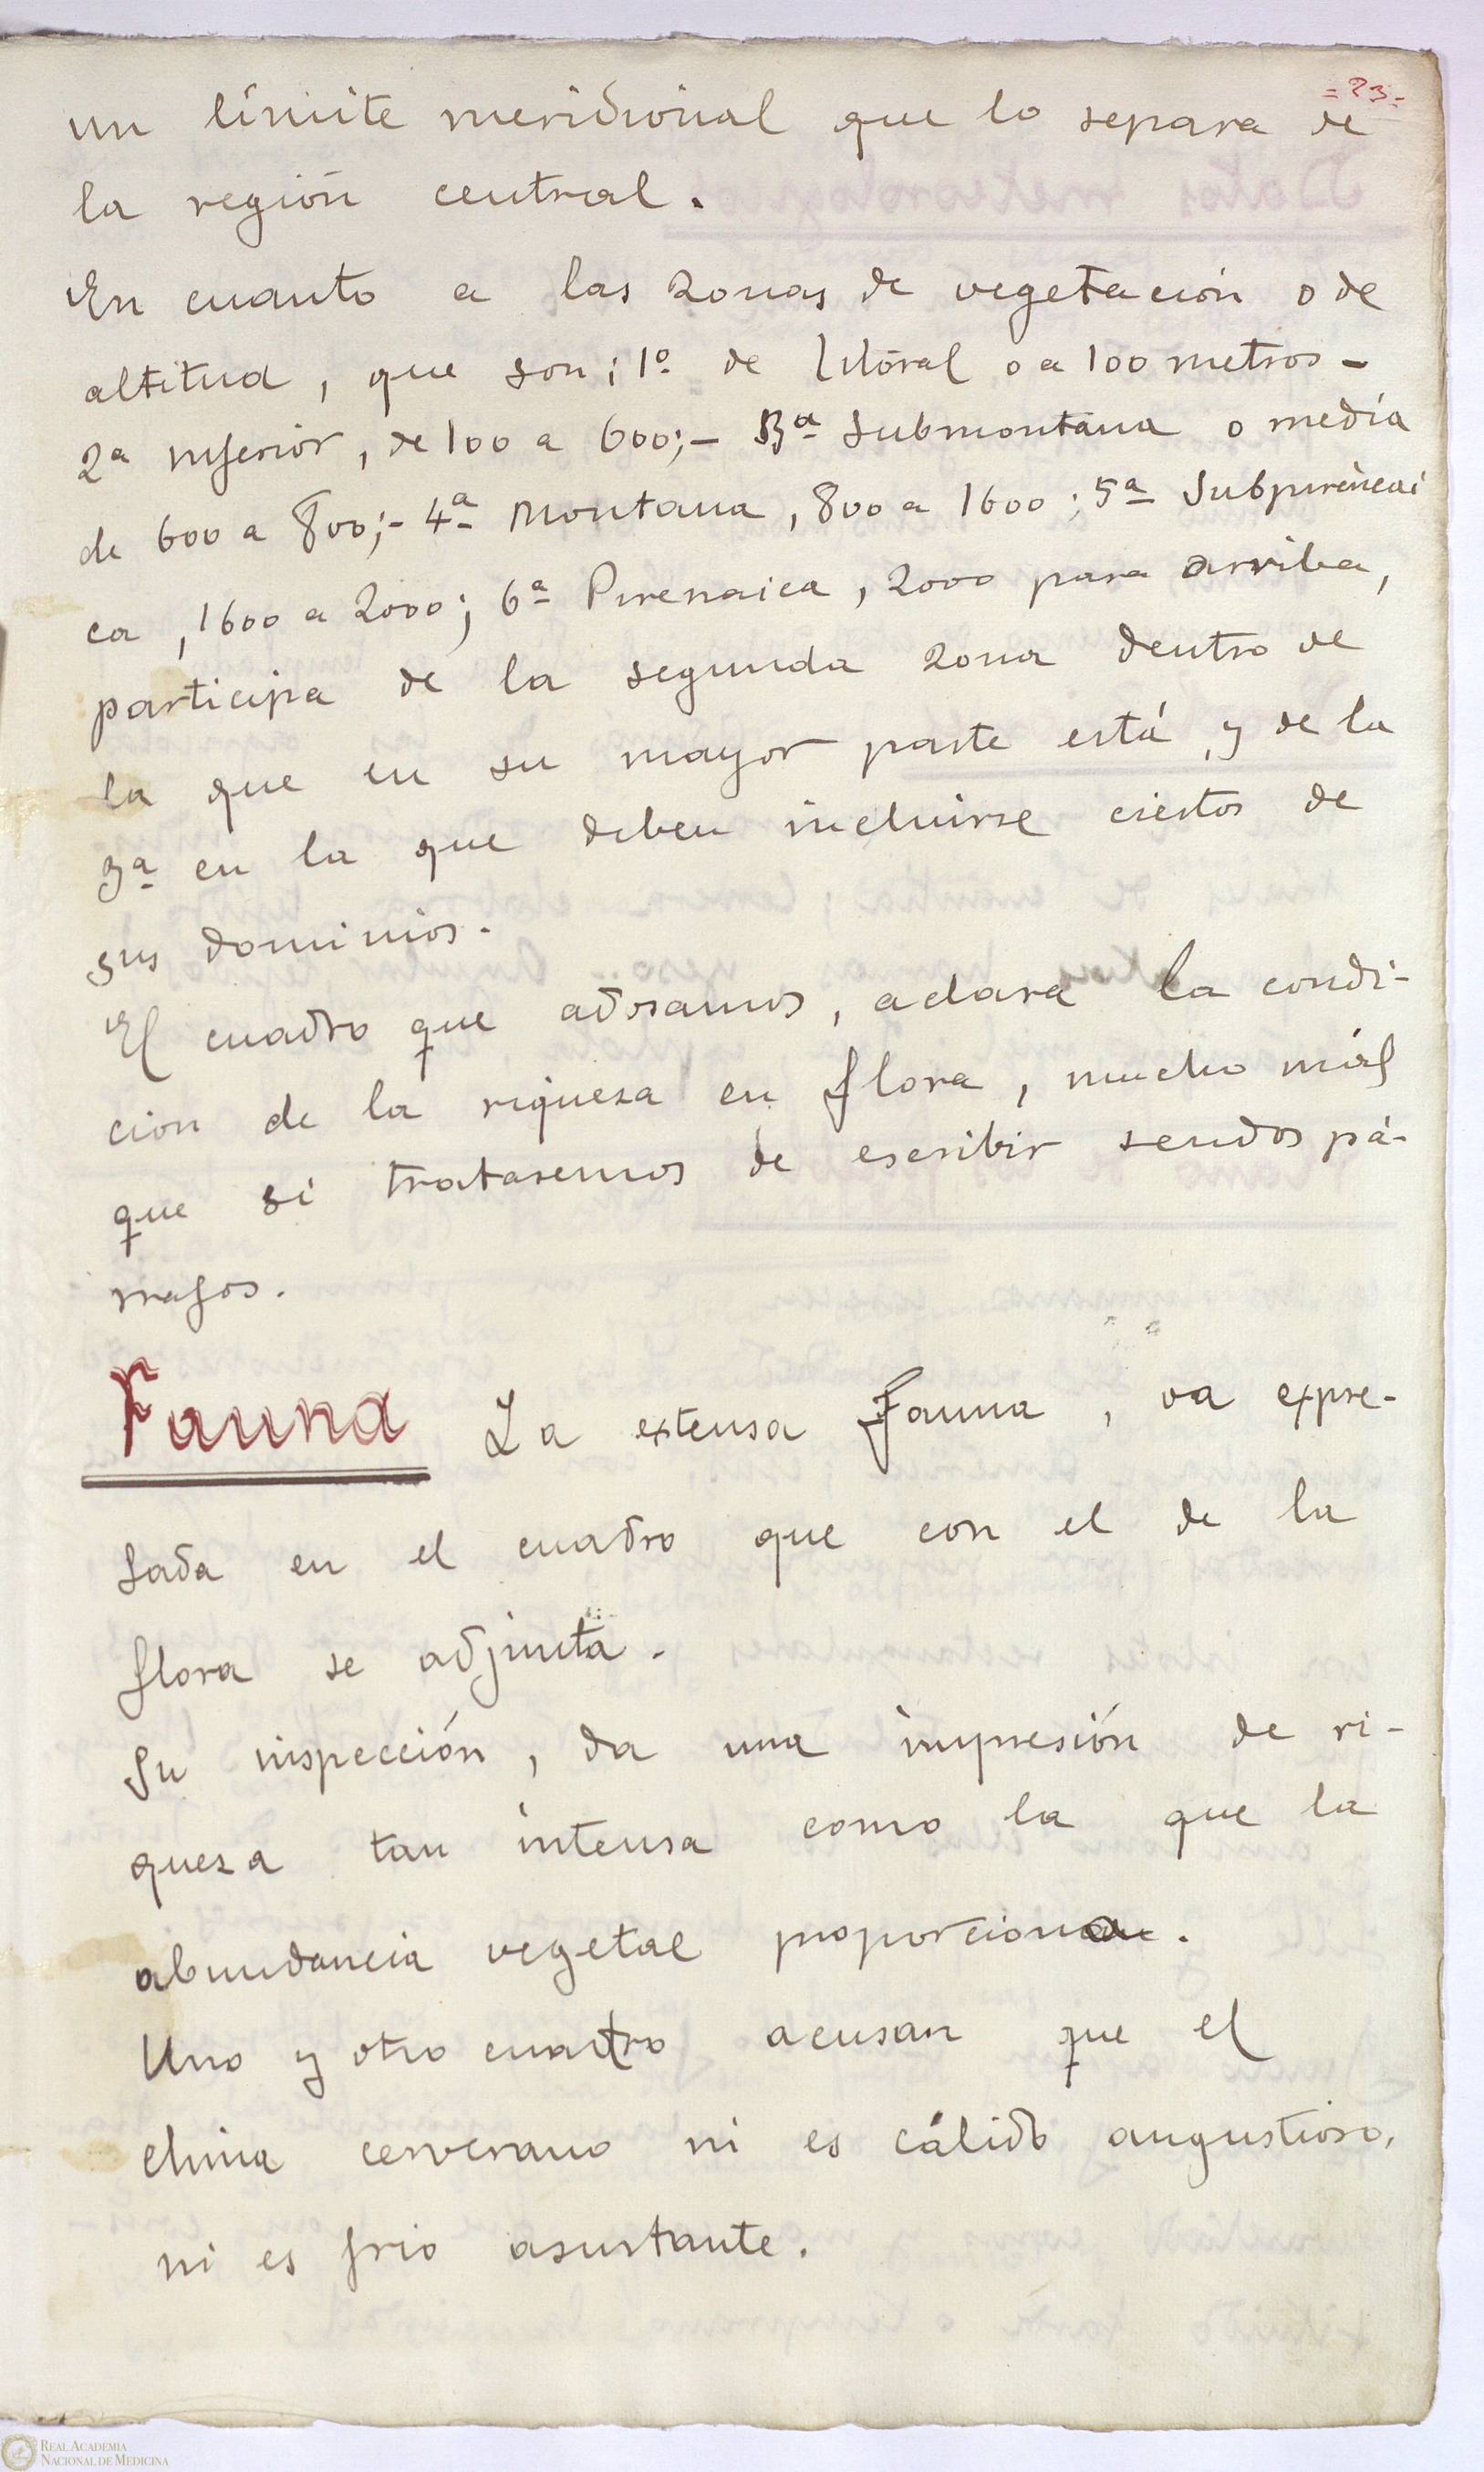 = 23 =
un límite meridional que lo separa de
la región central.
En cuanto a las zonas de vegetación o de
altitud, que son; 1º de litóral o a 100 metros -
2ª inferior, de 100 a 600; - 3ª submontana o media
de 600 a 800; - 4ª montana, 800 a 1600; 5ª Subpirenai
ca, 1600 a 2000; 6ª Pirenaica, 2000 para arriba,
participa de la segunda zona dentro de
la que en su mayor parte está, y de la
3ª en la que deben incluirse ciertos de
sus dominios.
El cuadro que adosamos, aclara la condi-
ción de la riqueza en flora, mucho más
que si tratasemos de escribir sendos pá-
rrafos.
Fauna La extensa fauna, va expre-
sada en el cuadro que con el de la
flora se adjunta.
Su inspección, da una impresión de ri-
queza tan intensa como la que la
abundancia vegetal proporciona.
Uno y otro cuadro acusan que el
clima cerverano ni es cálido angustioso,
ni es frio asustante.
REAL ACADEMIA
NACIONAL DE MEDICINA